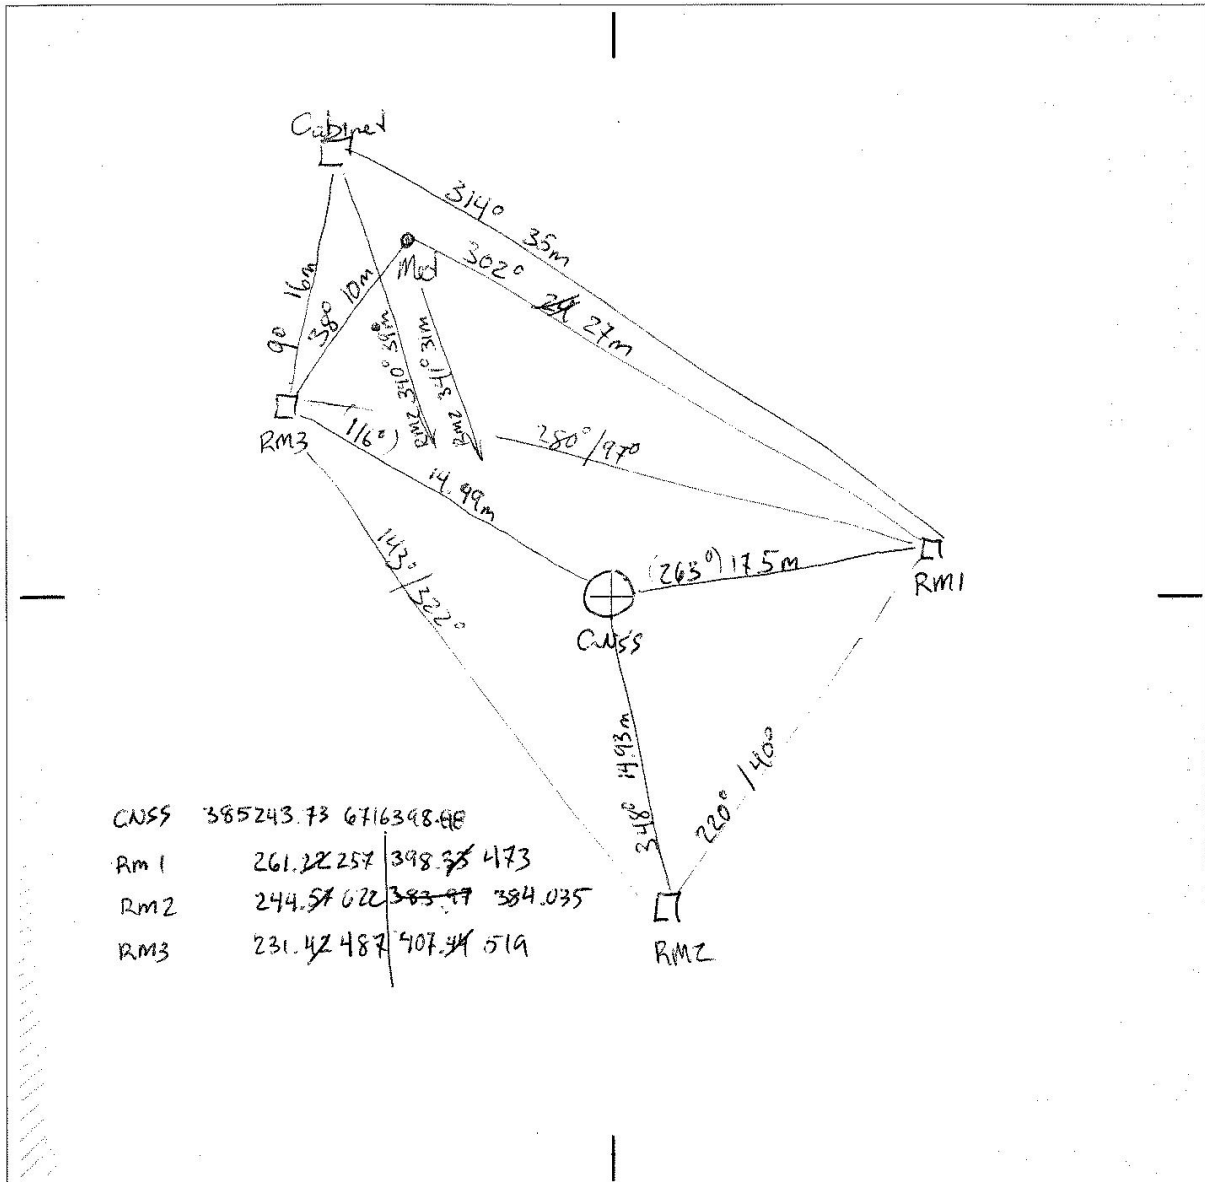 Cabinet
314° 35m
302° 27m
Met
16m
9°
38° 10m
RM2 340°
RM2 341° 31m
RM3
116°)
14.99m
280°/97°
143°/322°
(263°) 17.5m
RM1
GNSS
348° 14.93m
220° / 40°
RM2
GNSS 385243.73 6716398.
RM1 261.22 257 398.35 473
RM2 244.57 622 383.97 384.035
RM3 231.42 487 407.44 519